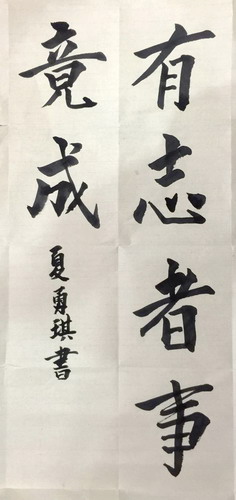 有志者事
竟成
夏勇琪書